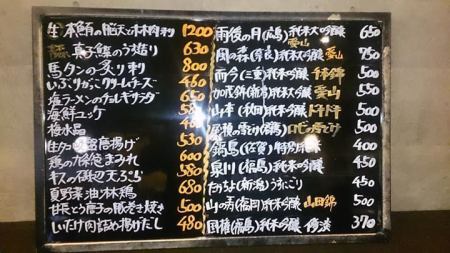 生本鮪の脳天と木木肉刺 1200
真子鰈のう造り 630
馬タンの炙り刺 800
いぶりがっこクリームチーズ 480
塩ラーメンのチョレギサラダ
海鮮ユッケ 580
梅水晶
唐揚げ 530
鶏の まみれ 600
キスの磯辺天ぷら
夏野菜油淋鶏
甘長とう唐子の豚巻き焼き 500
しいたけ肉詰め揚げだし 480
雨後の月(広島)純米大吟醸 愛山 650
風の森(奈良)純米大吟醸 愛山 750
而今(三重)純米吟醸 千本錦 500
加茂錦(新潟)純米大吟醸 愛山 550
山本(秋田)純米吟醸 ドキドキ 500
500
鍋島(佐賀)特別純米 400
泉川(福島)純米吟醸 450
たかちよ(新潟)うすにごり 450
山の壽(福岡)純米吟醸 山田錦 500
国権(福島)純米吟醸 370